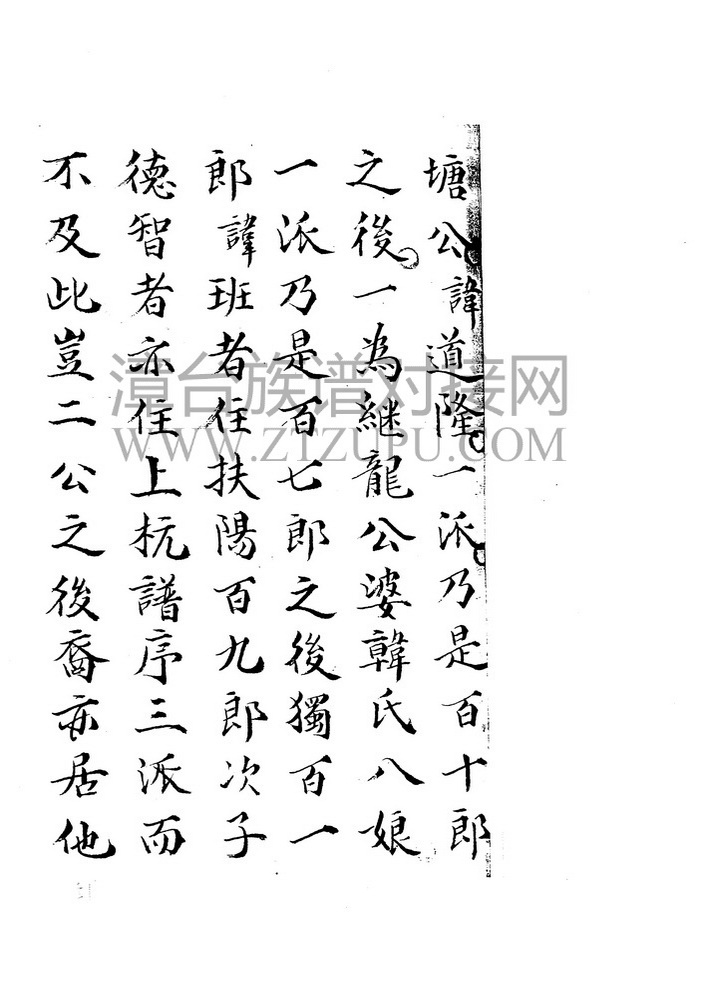 塘公諱道隆一派乃是百十郎
之後一為継龍公婆韓氏八娘
一派乃是百七郎之後獨百一
郎諱班者住扶陽百九郎次子
德智者亦住上杭譜序三派而
不及此豈二公之後裔亦居他
漳台族谱对接网
WWW.ZTZUPU.COM